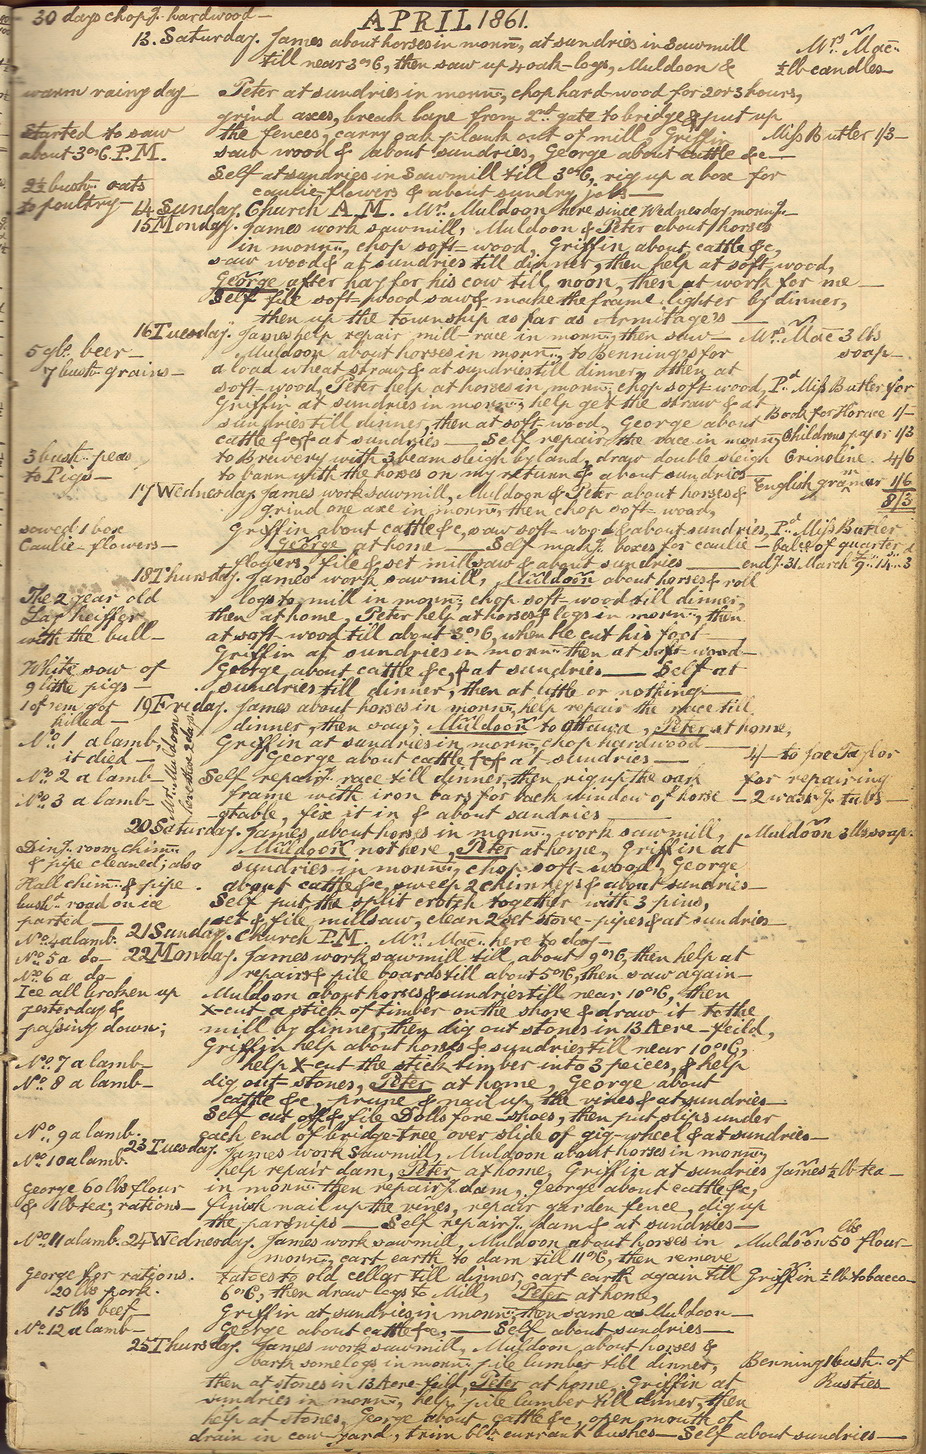 30 days chop.g hardwood —
APRIL 1861.
13. Saturday. James about horses in mornn:, at sundries in Sawmill
till near 3 o'c, then saw up 4 oak-logs, Muldoon &
Mrs. Mac:
½ lb candles
warm rainy day — Peter at sundries in mornn:, chop hard-wood for 2 or 3 hours,
grind axes, break bape from 2nd gate to bridge & put up
Started to saw the fences, carry oak plank out of mill, Griffin Miss Butler 1/3 —
about 3 o'c P.M. saw wood & about sundries, George about cattle &c —
Self at sundries in Sawmill till 3 o'c, rig up a box for
2½ bush: oats
caulie-flowers & about sundry jobs —
to poultry —
14 Sunday. Church A.M. Mrs. Muldoon here since Wednesday morning —
15 Monday. James work sawmill, Muldoon & Peter about horses
in mornn:, chop soft-wood, Griffin about cattle &c,
saw wood & at sundries till dinner, then help at soft-wood,
George after hay for his cow till noon, then at work for me —
Self file soft-wood saw & make the frame lighter by dinner,
then up the township as far as Armitagers —
16 Tuesday. James help repair mill-race in mornn: then saw — Mrs. Mac 3 lbs
soap —
5 gls. beer — Muldoon about horses in mornn:, to Bennings for
7 bush: grains — a load wheat straw & at sundries till dinner, then at
soft-wood, Peter help at horses in mornn:, chop soft-wood, Pd. Miss Butler for
Griffin at sundries in mornn:, help get the straw & at
Book for Horace 1/-
sundries till dinner, then at soft-wood, George about
cattle &c & at sundries — Self repair the race in mornn:, Childrens paper 1/3
3 bush: peas to Brewery with 3 beam sleigh by land, draw double sleigh Crinoline. 4/6
to Pigs — to barn with the horses on my return & about sundries — English grammar 1/6
8/3
17 Wednesday James work sawmill, Muldoon & Peter about horses &
grind one axe in mornn:, then chop soft-wood,
sowed 1 box Griffin about cattle &c, saw soft-wood & about sundries, Pd. Miss Butler
Caulie-flowers — George at home — Self mak.g boxes for caulie — bale: of quarter
flowers, file & set mill saw & about sundries — end.g 31 March 9..14..3
18 Thursday. James work sawmill, Muldoon about horses & roll
The 2 year old logs to mill in mornn:, chop soft-wood till dinner,
heiffer then at home, Peter help at horses & logs in mornn:, then
with the bull — at soft-wood till about 3 o'c, when he cut his foot —
Griffin at sundries in mornn: then at soft-wood —
White sow of George about cattle &c, & at sundries — Self at
9 little pigs — sundries till dinner, then at little or nothing —
1 of 'em got killed — 19 Friday. James about horses in mornn:, help repair the race till
dinner, then saw, Muldoon to Ottawa, Peter at home,
No. 1 a lamb, it died — Griffin at sundries in mornn:, chop hardwood —
George about cattle &c & at sundries — 4 — to Joe Taylor
No. 2 a lamb — Self repair.g race till dinner, then rig up the oak for repairing
No. 3 a lamb — frame with iron bars for back window of horse — 2 wash.g tubs —
stable, fix it in & about sundries —
Mrs. Muldoon here these 2 days
20 Saturday. James about horses in mornn:, work sawmill, Muldoon 3 lbs soap.
Din.g room chimn: Muldoon not here, Peter at home, Griffin at
& pipe cleaned; also sundries in mornn:, chop soft-wood, George
Hall chim: & pipe. about cattle &c, sweep 2 chimneys & about sundries —
bush.d road on ice Self put the split crotch together with 3 pins,
parted — set & file millsaw, clean 2 set stove-pipes & at sundries —
No. 4 a lamb. 21 Sunday. Church P.M. Mrs. Mac: here to day —
No. 5 a do — 22 Monday. James work sawmill till about 9 o'c, then help at
No. 6 a do — repairs & pile boards till about 5 o'c, then saw again —
Ice all broken up Muldoon about horses & sundries till near 10 o'c, then
yesterday & X-cut a stick of timber on the shore & draw it to the
passing down; mill by dinner, then dig out stones in 13 Acre-feild,
Griffin help about horses & sundries till near 10 o'c,
No. 7 a lamb — help X-cut the stick timber into 3 peices, & help
No. 8 a lamb — dig out stones, Peter at home, George about
cattle &c, prune & nail up the vines & at sundries —
Self cut off & file Dolls fore-shoes, then put slips under
No. 9 a lamb. each end of bridge-tree over slide of gig-wheel & at sundries —
23 Tuesday. James work Sawmill, Muldoon about horses in mornn:,
No. 10 a lamb. help repair dam, Peter at home, Griffin at sundries James ½ lb tea —
George 60 lbs flour in mornn: then repair.g dam, George about cattle &c,
& 1 lb tea; rations — finish nail up the vines, repair garden fence, dig up
the parsnips — Self repair.g dam & at sundries —
No. 11 a lamb. 24 Wednesday. James work sawmill, Muldoon about horses in Muldoon 50 lbs flour —
mornn:, cart earth to dam till 11 o'c, then remove
George for rations. tatoes to old cellar till dinner, cart earth again till Griffin ½ lb tobacco —
20 lbs pork. 6 o'c, then draw logs to Mill, Peter at home,
15 lbs beef — Griffin at sundries in mornn:, then same as Muldoon —
No. 12 a lamb — George about cattle &c, — Self about sundries —
25 Thursday. James work sawmill, Muldoon about horses &
bark some logs in mornn: pile lumber till dinner, Benning 1 bush: of
then at stones in 13 Acre-feild, Peter at home, Griffin at Rusties —
sundries in mornn:, help pile lumber till dinner, then
help at stones, George about cattle &c, open mouth of
drain in cow-yard, trim blk: currant bushes — Self about sundries —